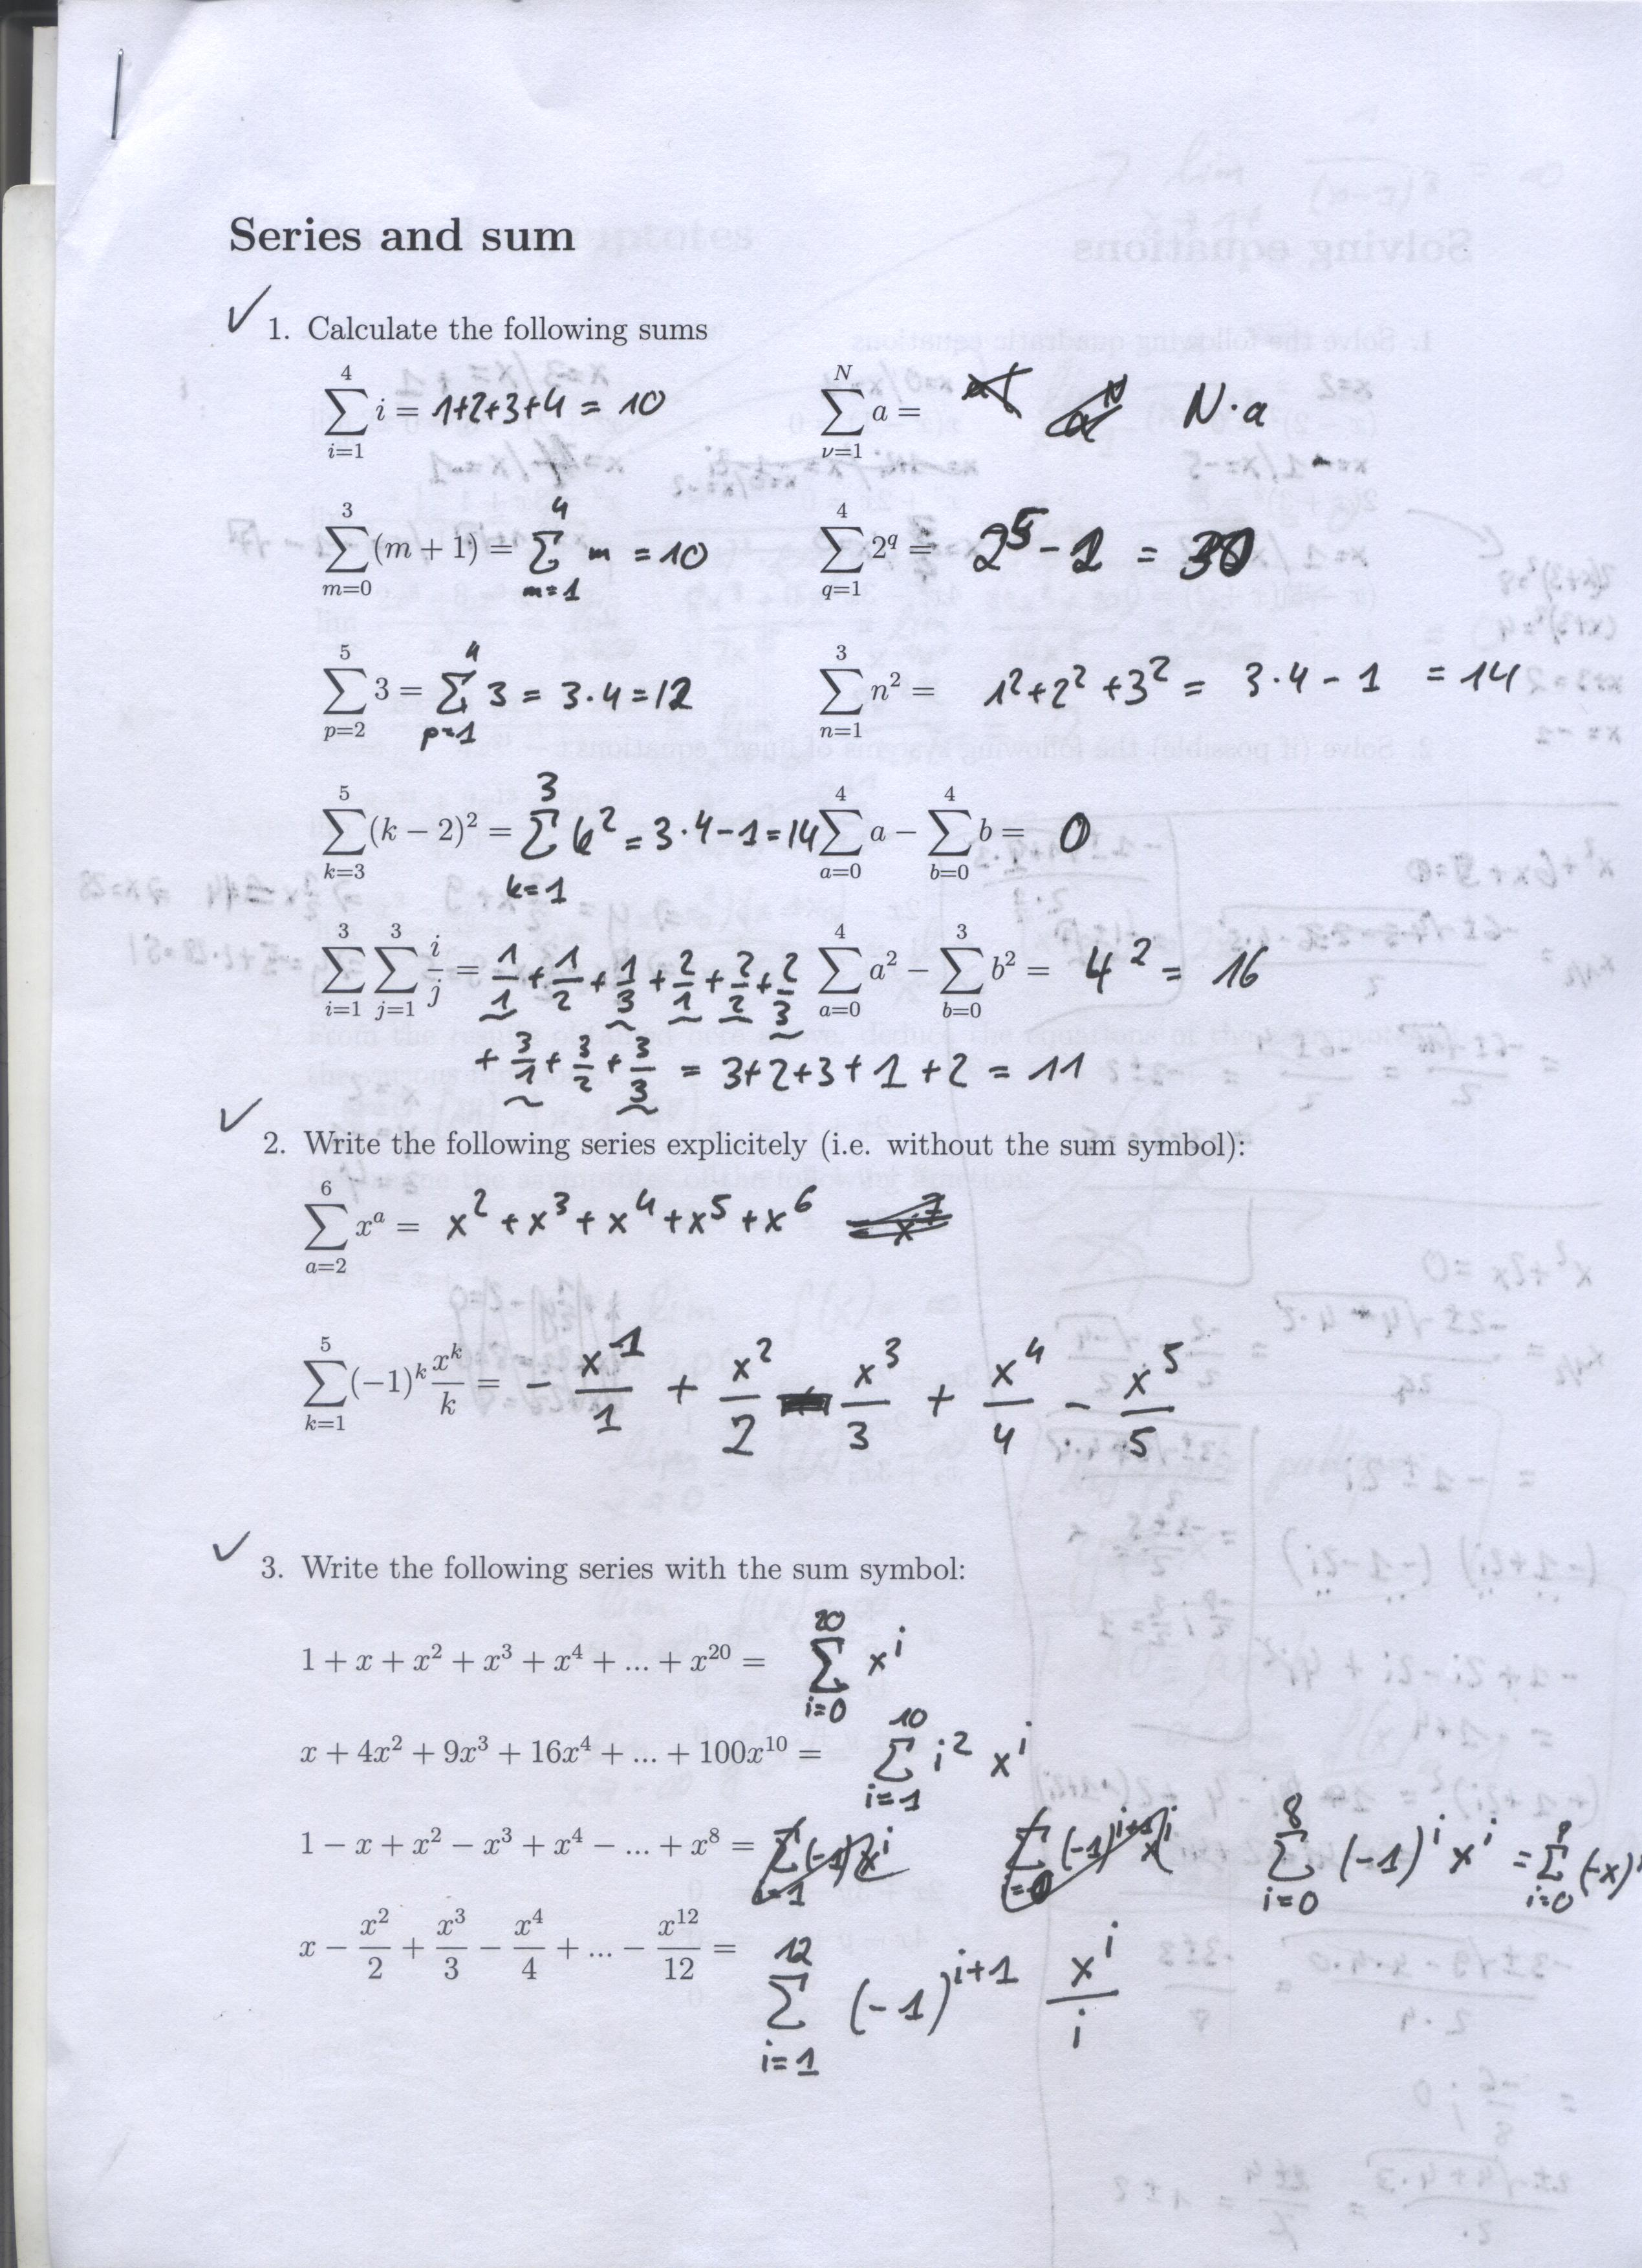 Series and sum
✓ 1. Calculate the following sums
∑_{i=1}^{4} i = 1+2+3+4 = 10
∑_{ν=1}^{N} a = N·a
∑_{m=0}^{3} (m + 1) = ∑_{m=1}^{4} m = 10
∑_{q=1}^{4} 2^q = 2^5 - 2 = 30
∑_{p=2}^{5} 3 = ∑_{p=1}^{4} 3 = 3·4 = 12
∑_{n=1}^{3} n² = 1²+2²+3² = 3·4 - 1 = 14
∑_{k=3}^{5} (k − 2)² = ∑_{k=1}^{3} k² = 3·4-1 = 14
∑_{a=0}^{4} a − ∑_{b=0}^{4} b = 0
∑_{i=1}^{3} ∑_{j=1}^{3} i/j = 1/1 + 1/2 + 1/3 + 2/1 + 2/2 + 2/3
+ 3/1 + 3/2 + 3/3 = 3+2+3+1+2 = 11
∑_{a=0}^{4} a² − ∑_{b=0}^{3} b² = 4² = 16
✓ 2. Write the following series explicitely (i.e. without the sum symbol):
∑_{a=2}^{6} x^a = x² + x³ + x⁴ + x⁵ + x⁶
∑_{k=1}^{5} (−1)^k x^k/k = - x^1/1 + x²/2 - x³/3 + x⁴/4 - x⁵/5
✓ 3. Write the following series with the sum symbol:
1 + x + x² + x³ + x⁴ + ... + x²⁰ = ∑_{i=0}^{20} x^i
x + 4x² + 9x³ + 16x⁴ + ... + 100x¹⁰ = ∑_{i=1}^{10} i² x^i
1 − x + x² − x³ + x⁴ − ... + x⁸ = ∑_{i=0}^{8} (-1)^i x^i = ∑_{i=0}^{8} (-x)^i
x − x²/2 + x³/3 − x⁴/4 + ... − x¹²/12 = ∑_{i=1}^{12} (-1)^{i+1} x^i/i